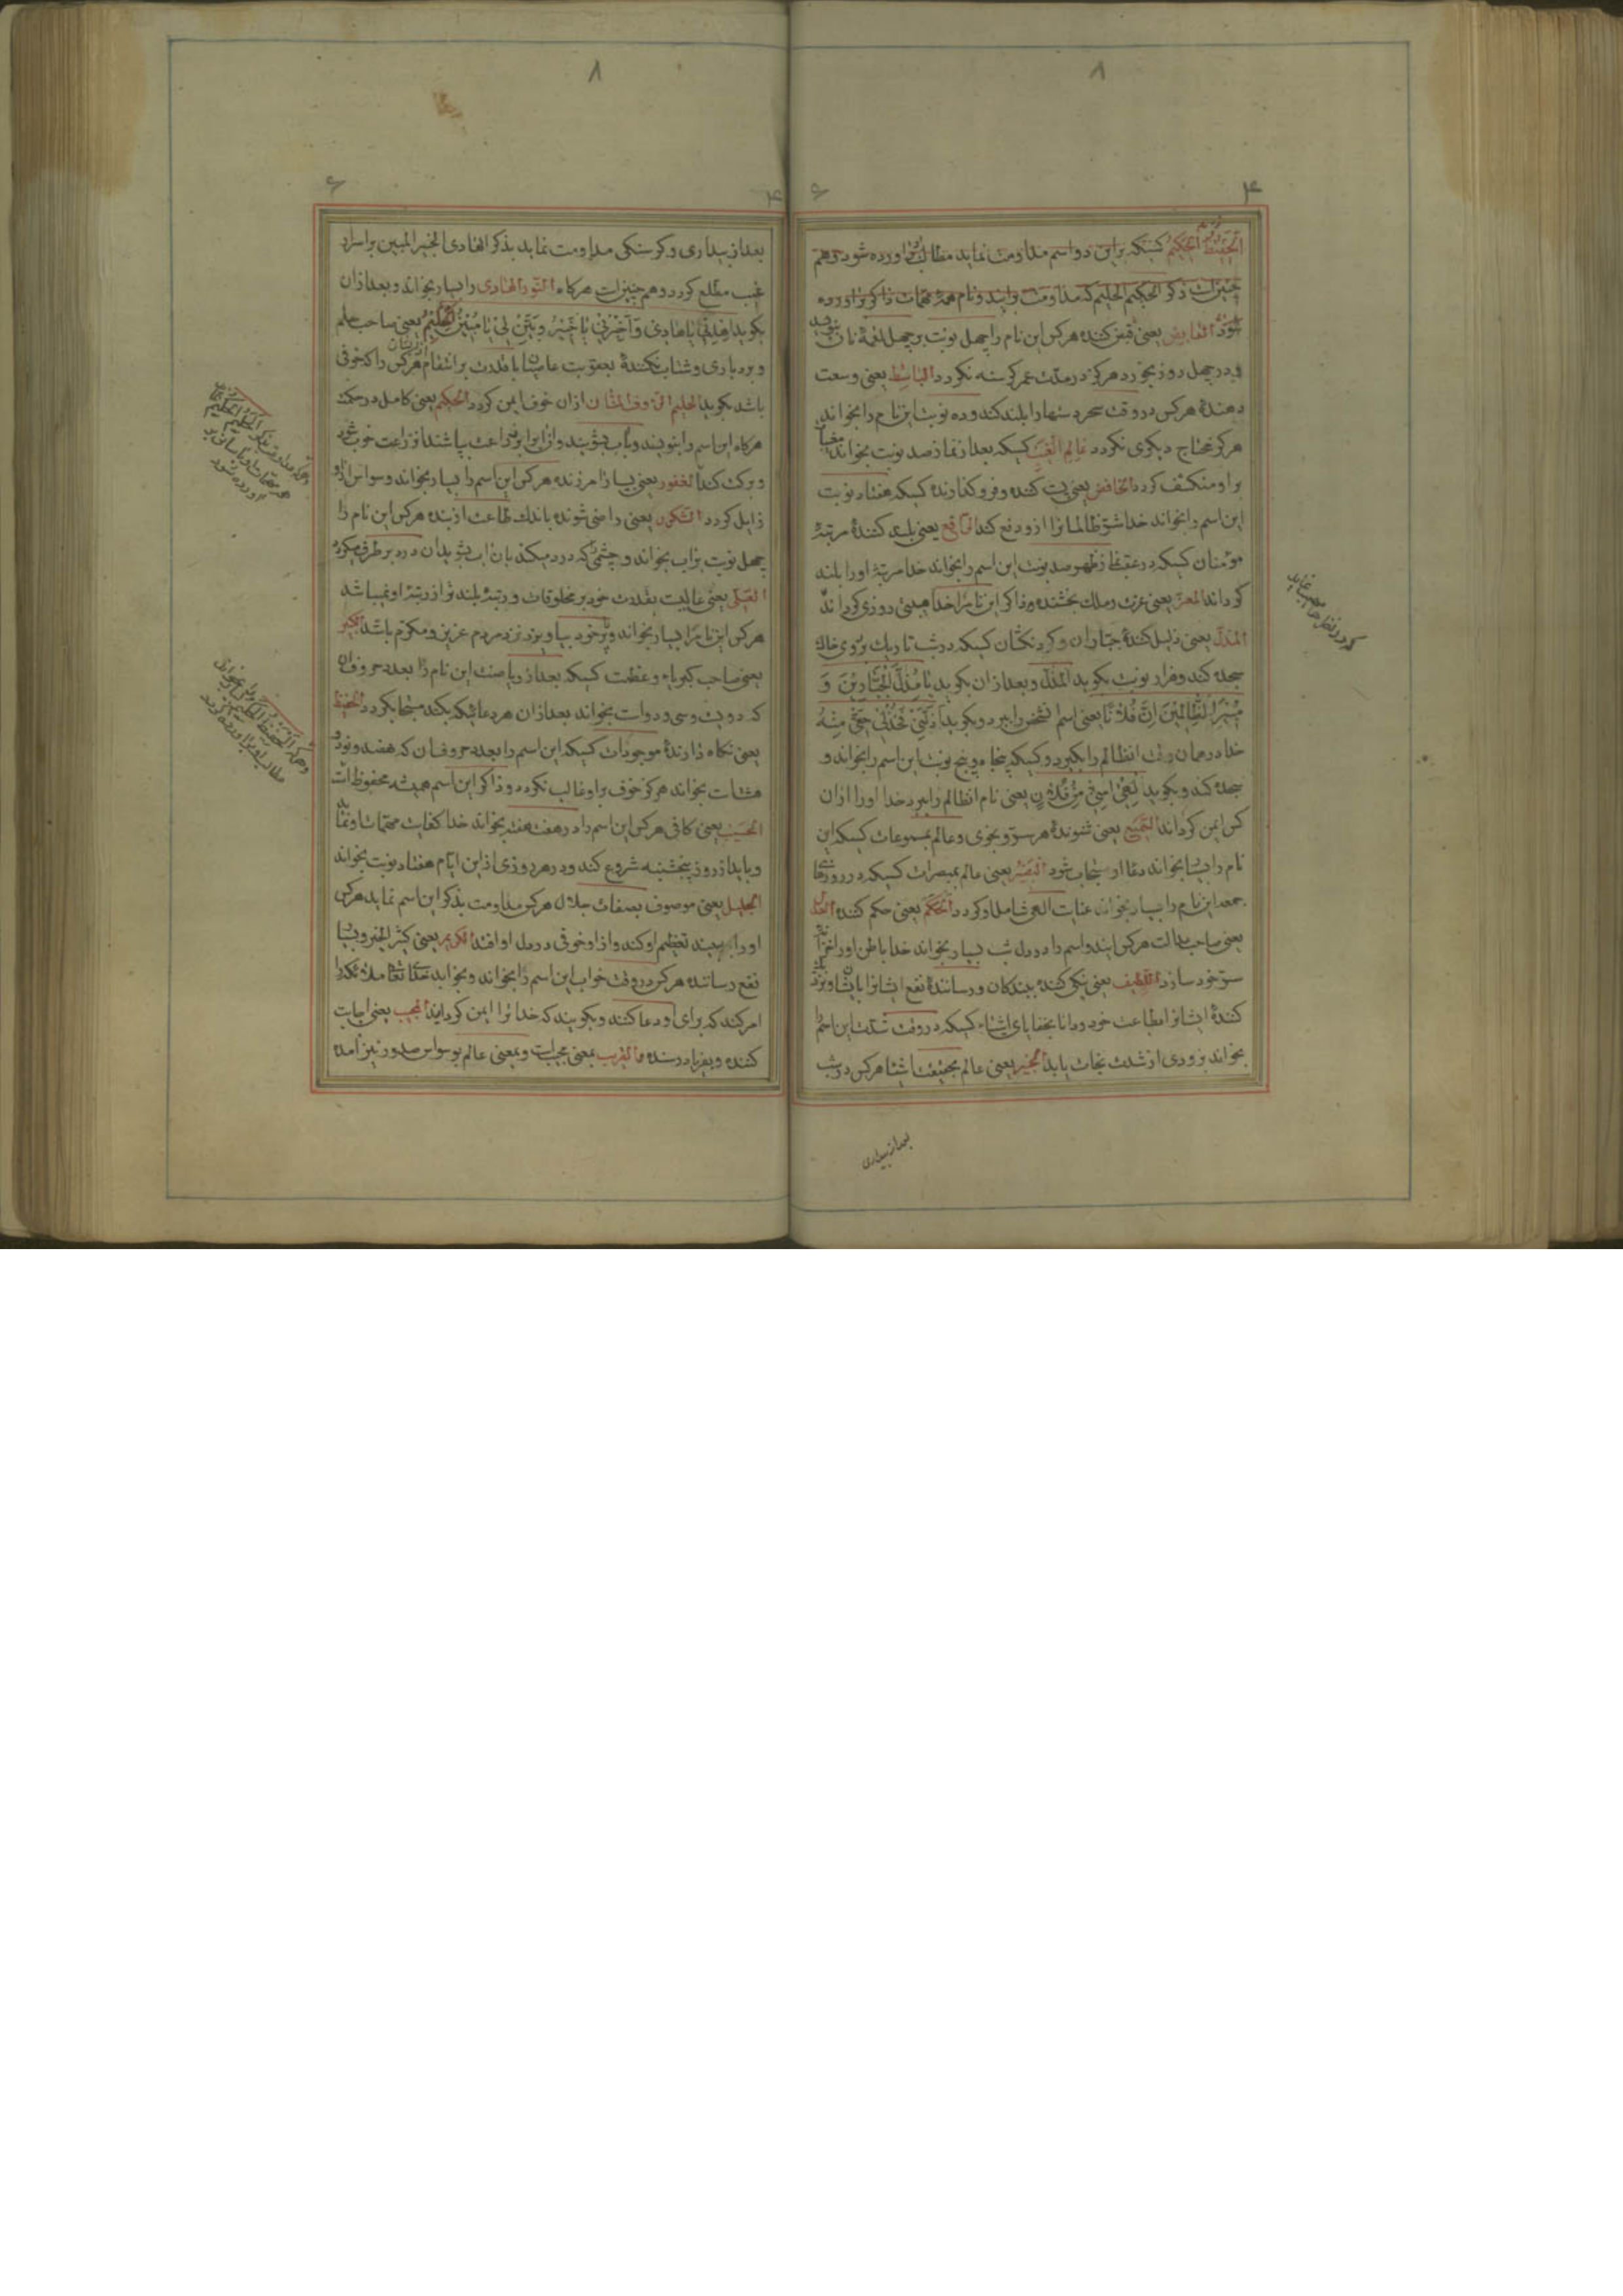 ۸
۴ ۶
الحفیظ الحکیم کسیکه براین دو اسم مداومت نماید مطالب او براورده شود و هم
چنین است ذکر الحکیم الحلیم که مداومت برایندو نام همهٔ مهمات ذاکر براورده
شود القابض یعنی قبض کننده هرکس این نام را چهل نوبت بر چهل لقمهٔ نان بنویسد
و در چهل روز بخورد هرکز در مدّت عمر کرسنه نکردد الباسط یعنی وسعت
دهندهٔ هرکس در وقت سحر دستها را بلند کند و ده نوبت این نام را بخواند
هرکز محتاج دیکری نکردد عالم الغیب کسیکه بعد از نماز صد نوبت بخواند مغیبات
بر او منکشف کردد الخافض یعنی پست کننده و فرو کذارنده کسیکه هفتاد نوبت
این اسم را بخواند خدا شرّ ظالمانرا ازو دفع کند الرافع یعنی بلند کنندهٔ مرتبهٔ
مؤمنان کسیکه در عقب نماز ظهر صد نوبت این اسم را بخواند خدا مرتبهٔ اورا بلند
کرداند المعزّ یعنی عزت و ملک بخشنده و ذاکر این نام را خدا هیبتی روزی کرداند
المذلّ یعنی ذلیل کنندهٔ جبّاران و کردنکشان کسیکه در شب تاریک بر روی خاک
سجده کند و هزار نوبت بکوید المذلّ و بعد ازان بکوید یا مذلّ الجبّارین و
مبیر الظالمین انّ فلاناً یعنی اسم شخص را ببرد و بکوید اذلّنی فخذلی حقّی منه
خدا در همان وقت انظالم را بکیرد و کسیکه پنجاه و پنج نوبت این اسم را بخواند و
سجده کند و بکوید الهی امنّی من فلان یعنی نام انظالم را ببرد خدا اورا ازان
کس ایمن کرداند السمیع یعنی شنوندهٔ هر سرّ و نجوی و عالم بمسموعات کسیکه این
نام را بسیار بخواند دعا او مستجاب شود البصیر یعنی عالم بمبصرات کسیکه در روزهای
جمعه این نام را بسیار بخواند عنایت الهی شامل او کردد الحکم یعنی حکم کننده العدل
یعنی صاحب عدالت هرکس ایندو اسم را در دل شب بسیار بخواند خدا باطن اورا خزانه
سرّ خود سازد اللطیف یعنی نیکی کننده ببندکان و رسانندهٔ نفع ایشانرا بایشان و نزدیک
کنندهٔ ایشانرا بطاعت خود و دانا بخفایای اشیاء کسیکه در وقت شدّت این اسم را
بخواند بزودی از شدّت نجات یابد الخبیر یعنی عالم بحقیقت اشیا هرکس در شب
بعد از بیداری
۸
۴ ۶
بعد از بیداری و کرسنکی مداومت نماید بذکر الهادی الخبیر المبین بر اسرار
غیب مطّلع کردد و هم چنین است هرکاه النور الهادی را بسیار بخواند و بعد ازان
بکوید اهدنی یا هادی و اخبرنی یا خبیر و بیّن لی یا مبین الحلیم یعنی صاحب حلم
و بردباری و شتاب نکنندهٔ بعقوبت عاصیان با قدرت بر انتقام از ایشان هرکس را که خوفی
باشد بکوید الحلیم الرؤف المنّان ازان خوف ایمن کردد الحکیم یعنی کامل در حکمت
هرکاه این اسم را بنویسند و باب بشویند و ان ابرا بر زراعت بپاشند انزراعت خوب شود
و برکت کند الغفور یعنی بسیار امرزنده هرکس این اسم را بسیار بخواند وسواس ازو
زایل کردد الشکور یعنی راضی شونده باندک طاعت از بنده هرکس این نام را
چهل نوبت بر اب بخواند و چشمی که درد میکند بان اب بشوید ان درد بر طرف میکردد
العلیّ یعنی عالیست بقدرت خود بر مخلوقات و رتبهٔ بلند تر از رتبهٔ او نمیباشد
هرکس این نام را بسیار بخواند و بر خود بیاویزد نزد مردم عزیز و مکرّم باشد الکبیر
یعنی صاحب کبریاء و عظمت کسیکه بعد از ریاضت این نام را بعدد حروف ان
که دویست و سی و دو است بخواند بعد ازان هر دعائیکه بکند مستجاب کردد الحفیظ
یعنی نکاه دارندهٔ موجودات کسیکه این اسم را بعدد حروف ان که نهصد و نود و
هشت است بخواند هرکز خوف بر او غالب نکردد و ذاکر این اسم همیشه محفوظ است
الحسیب یعنی کافی هرکس این اسم را در هفت هفته بخواند خدا کفایت مهمات او نماید
و باید از روز پنجشنبه شروع کند و در هر روزی از این ایّام هفتاد نوبت بخواند
الجلیل یعنی موصوف بصفات جلال هرکس مداومت بذکر این اسم نماید هرکس
اورا ببیند تعظیم او کند و از او خوفی در دل او افتد الکریم یعنی کثیر الخیر و بسیار
نفع رساننده هرکس در وقت خواب این اسم را بخواند و بخوابد خدایتعالی ملائکه را
امر کند که برای او دعا کنند و بکویند که خدا ترا ایمن کرداند المجیب یعنی اجابت
کننده و بفریاد رسنده و القریب بمعنی مجیبست و بمعنی عالم بوسواس صدور نیز امده